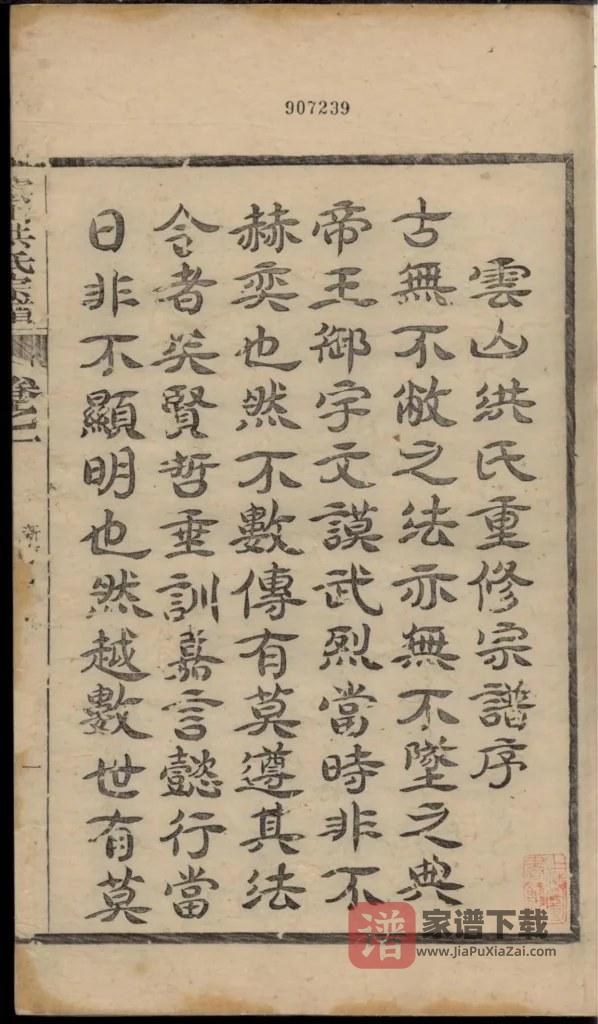 907239
雲山洪氏重修宗譜序
古無不敝之法亦無不墜之典
帝王御宇文謨武烈當時非不
赫奕也然不數傳有莫遵其法
令者矣賢哲垂訓嘉言懿行當
日非不顯明也然越數世有莫
洪氏宗譜
卷之二
一
譜 家谱下载
www.JiaPuXiaZai.com